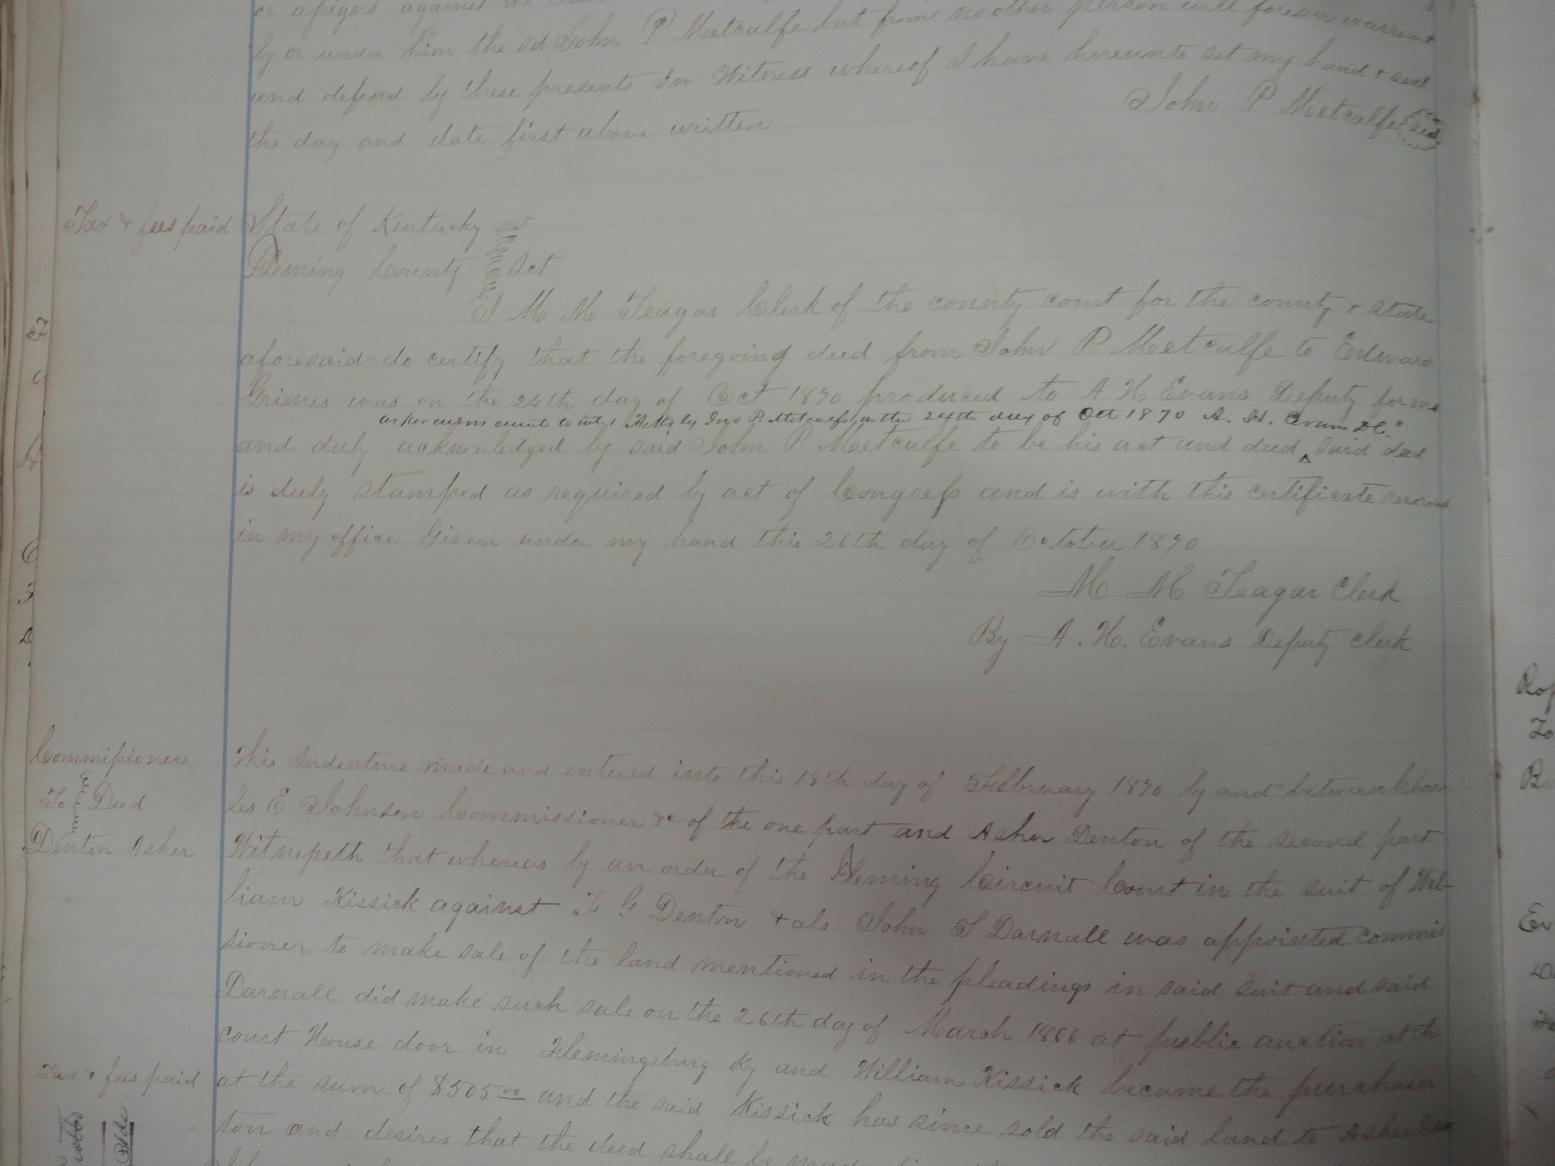 or assigns against the
by or under him the sd John P Metcalfe but from no other person will forever warrant
and defend by these presents In Witness whereof I have hereunto set my hand & seal
the day and date first above written
John P Metcalfe Seal
Tax & fees paid
State of Kentucky
Fleming County Sct
I M M Teagar Clerk of the county court for the county & state
aforesaid do certify that the foregoing deed from John P Metcalfe to Edward
Grimes was on the 26th day of Oct 1870 produced to A H Evans Deputy for me
by Jno P. Metcalfe on the 24th day of Oct 1870 A. H. Evans DC"
and duly acknowledged by said John P Metcalfe to be his act and deed, Said deed
is duly stamped as required by act of Congress and is with this certificate recorded
in my office Given under my hand this 26th day of October 1870
M M Teagar Clerk
By A. H. Evans Deputy Clerk
Commissioner
To Deed
Denton Asher
This Indenture made and entered into this 18th day of February 1870 by and between Char
les E Johnson Commissioner &c of the one part and Asher Denton of the second part
Witnesseth that whereas by an order of the Fleming Circuit Court in the suit of Wil-
liam Kissick against F G Denton & als John S Darnall was appointed commis
sioner to make sale of the land mentioned in the pleadings in said suit and said
Darnall did make such sale on the 26th day of March 1866 at public auction at th
court House door in Flemingsburg Ky and William Kissick became the purchaser
Tax & fees paid
at the sum of $505 00 and the said Kissick has since sold the said land to Asher Den
ton and desires that the deed shall be made